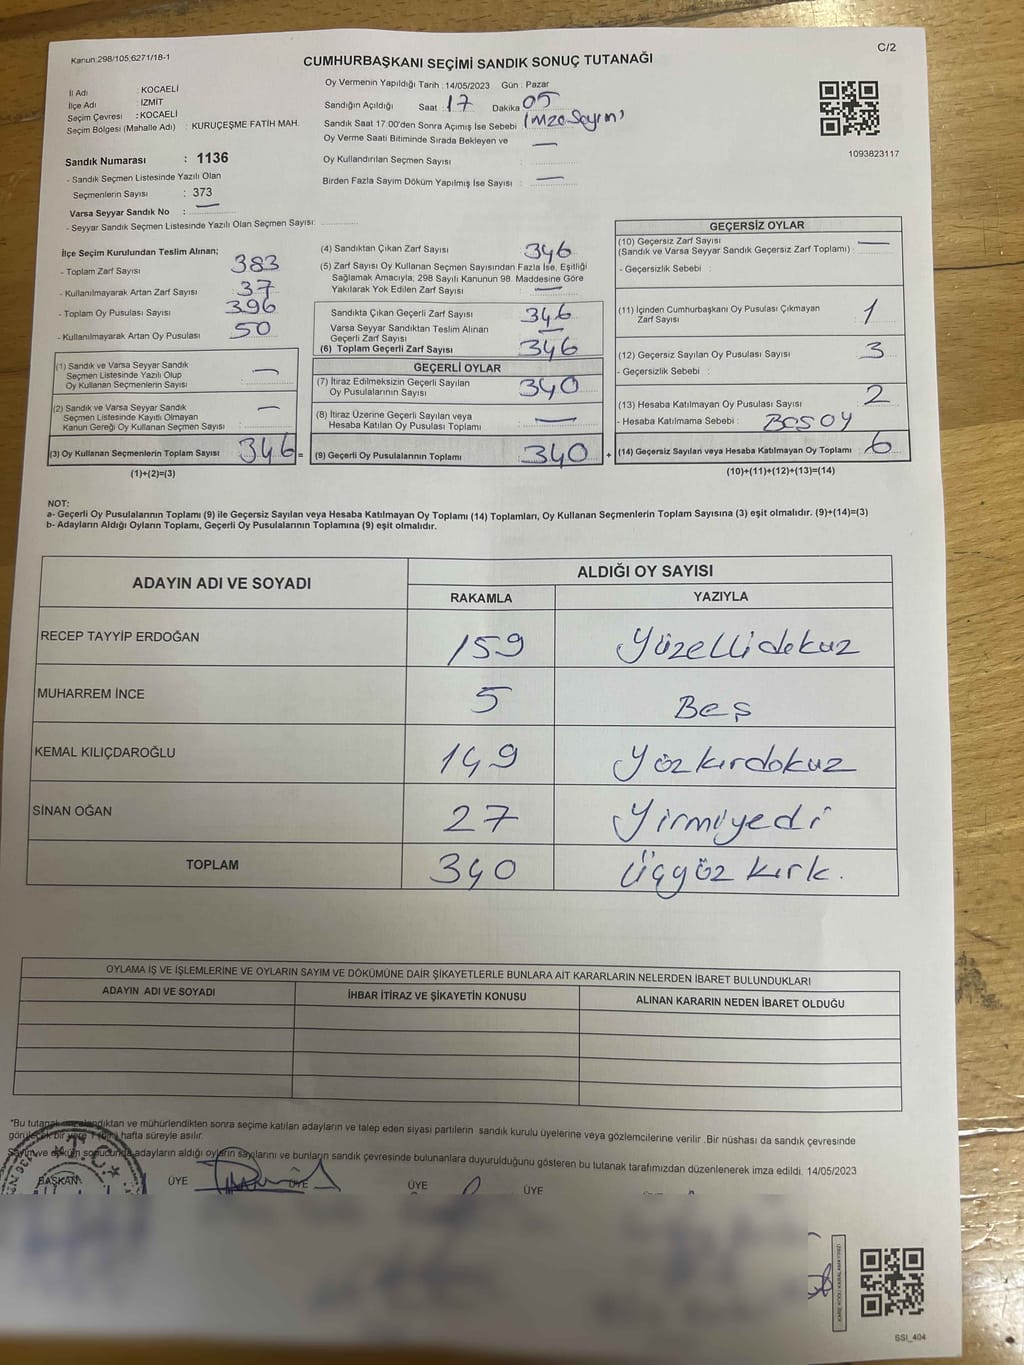 Kanun:298/105;6271/18-1
C/2
CUMHURBAŞKANI SEÇİMİ SANDIK SONUÇ TUTANAĞI
İl Adı : KOCAELİ
İlçe Adı : İZMİT
Seçim Çevresi : KOCAELİ
Seçim Bölgesi (Mahalle Adı) : KURUÇEŞME FATİH MAH.
Sandık Numarası : 1136
- Sandık Seçmen Listesinde Yazılı Olan
Seçmenlerin Sayısı : 373
Varsa Seyyar Sandık No : —
- Seyyar Sandık Seçmen Listesinde Yazılı Olan Seçmen Sayısı:
Oy Vermenin Yapıldığı Tarih : 14/05/2023 Gün : Pazar
Sandığın Açıldığı Saat : 17 Dakika : 05
Sandık Saat 17.00'den Sonra Açımış İse Sebebi : İmza Sayım'
Oy Verme Saati Bitiminde Sırada Bekleyen ve —
Oy Kullandırılan Seçmen Sayısı :
Birden Fazla Sayım Döküm Yapılmış İse Sayısı : —
1093823117
İlçe Seçim Kurulundan Teslim Alınan;
- Toplam Zarf Sayısı : 383
- Kullanılmayarak Artan Zarf Sayısı : 37
- Toplam Oy Pusulası Sayısı : 396
- Kullanılmayarak Artan Oy Pusulası : 50
(1) Sandık ve Varsa Seyyar Sandık
Seçmen Listesinde Yazılı Olup
Oy Kullanan Seçmenlerin Sayısı : —
(2) Sandık ve Varsa Seyyar Sandık
Seçmen Listesinde Kayıtlı Olmayan
Kanun Gereği Oy Kullanan Seçmen Sayısı : —
(3) Oy Kullanan Seçmenlerin Toplam Sayısı : 346 =
(1)+(2)=(3)
(4) Sandıktan Çıkan Zarf Sayısı : 346
(5) Zarf Sayısı Oy Kullanan Seçmen Sayısından Fazla İse, Eşitliği
Sağlamak Amacıyla; 298 Sayılı Kanunun 98. Maddesine Göre
Yakılarak Yok Edilen Zarf Sayısı : —
Sandıkta Çıkan Geçerli Zarf Sayısı : 346
Varsa Seyyar Sandıktan Teslim Alınan
Geçerli Zarf Sayısı : —
(6) Toplam Geçerli Zarf Sayısı : 346
GEÇERLİ OYLAR
(7) İtiraz Edilmeksizin Geçerli Sayılan
Oy Pusulalarının Sayısı : 340
(8) İtiraz Üzerine Geçerli Sayılan veya
Hesaba Katılan Oy Pusulası Toplamı : —
(9) Geçerli Oy Pusulalarının Toplamı : 340 +
GEÇERSİZ OYLAR
(10) Geçersiz Zarf Sayısı : —
(Sandık ve Varsa Seyyar Sandık Geçersiz Zarf Toplamı)
- Geçersizlik Sebebi :
(11) İçinden Cumhurbaşkanı Oy Pusulası Çıkmayan
Zarf Sayısı : 1
(12) Geçersiz Sayılan Oy Pusulası Sayısı : 3
- Geçersizlik Sebebi :
(13) Hesaba Katılmayan Oy Pusulası Sayısı : 2
- Hesaba Katılmama Sebebi : BOŞ OY
(14) Geçersiz Sayılan veya Hesaba Katılmayan Oy Toplamı : 6
(10)+(11)+(12)+(13)=(14)
NOT:
a- Geçerli Oy Pusulalarının Toplamı (9) ile Geçersiz Sayılan veya Hesaba Katılmayan Oy Toplamı (14) Toplamları, Oy Kullanan Seçmenlerin Toplam Sayısına (3) eşit olmalıdır. (9)+(14)=(3)
b- Adayların Aldığı Oyların Toplamı, Geçerli Oy Pusulalarının Toplamına (9) eşit olmalıdır.
ADAYIN ADI VE SOYADI
ALDIĞI OY SAYISI
RAKAMLA YAZIYLA
RECEP TAYYİP ERDOĞAN 159 Yüzellidokuz
MUHARREM İNCE 5 Beş
KEMAL KILIÇDAROĞLU 149 Yözkırdokuz
SİNAN OĞAN 27 Yirmiyedi
TOPLAM 340 Üçyöz kırk.
OYLAMA İŞ VE İŞLEMLERİNE VE OYLARIN SAYIM VE DÖKÜMÜNE DAİR ŞİKAYETLERLE BUNLARA AİT KARARLARIN NELERDEN İBARET BULUNDUKLARI
ADAYIN ADI VE SOYADI İHBAR İTİRAZ VE ŞİKAYETİN KONUSU ALINAN KARARIN NEDEN İBARET OLDUĞU
"Bu tutanak imzalandıktan ve mühürlendikten sonra seçime katılan adayların ve talep eden siyasi partilerin sandık kurulu üyelerine veya gözlemcilerine verilir .Bir nüshası da sandık çevresinde
görülecek bir yere 1 (bir) hafta süreyle asılır.
Sayım ve döküm sonucunda adayların aldığı oyların sayılarını ve bunların sandık çevresinde bulunanlara duyurulduğunu gösteren bu tutanak tarafımızdan düzenlenerek imza edildi. 14/05/2023
BAŞKAN ÜYE ÜYE ÜYE ÜYE
T.C.
SSI_404